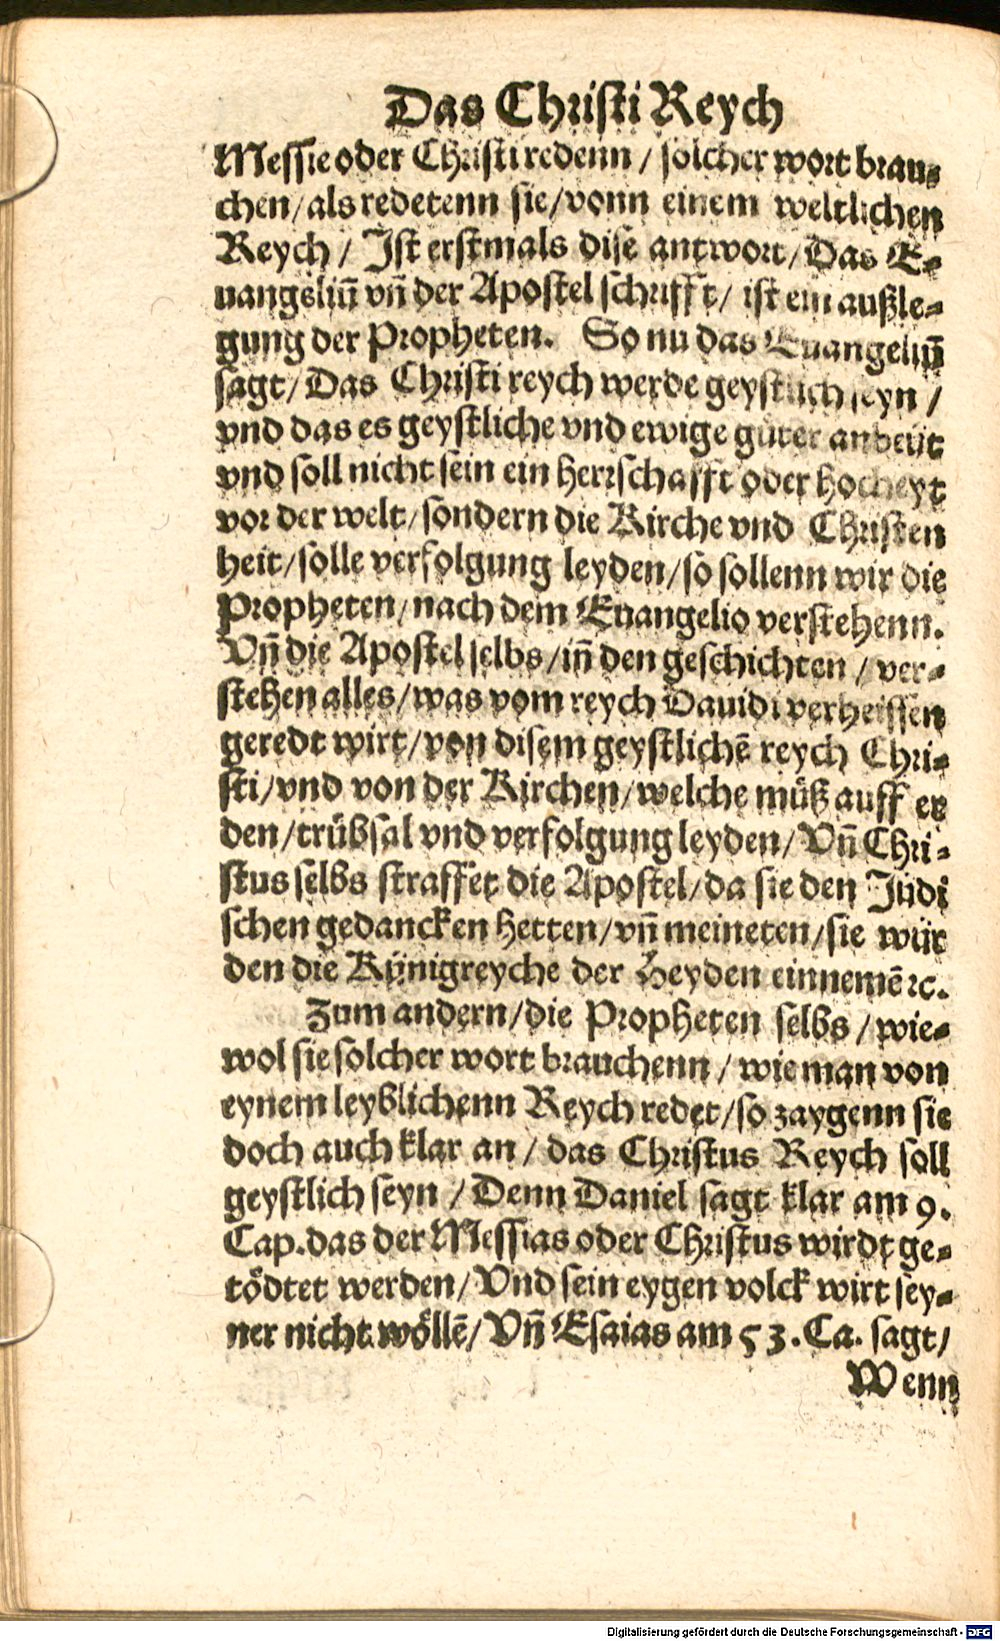 Das Christi Reych
Messie oder Christi redenn / solcher wort brau⸗
chen / als redetenn sie / vonn einem weltlichen
Reych / Ist erstmals dise antwort / Das E⸗
uangeliũ vñ der Apostel schrifft / ist ein außle⸗
gung der Propheten. So nu das Euangeliũ
sagt / Das Christi reych werde geystlich seyn /
vnd das es geystliche vnd ewige güter anbeüt
vnd soll nicht sein ein herrschafft oder hocheyt
vor der welt / sondern die Kirche vnd Christen
heit / solle verfolgung leyden / so sollenn wir die
Propheten / nach dem Euangelio verstehenn.
Vñ die Apostel selbs / iñ den geschichten / ver⸗
stehen alles / was vom reych Dauidi verheissen
geredt wirt / von disem geystlichẽ reych Chri⸗
sti / vnd von der Kirchen / welche muͤß auff er
den / truͤbsal vnd verfolgung leyden / Vñ Chri⸗
stus selbs straffet die Apostel / da sie den Juͤdi
schen gedancken hetten / vñ meineten / sie wuͤr
den die Kuͤnigreyche der Heyden einnemẽ ꝛc.
Zum andern / die Propheten selbs / wie⸗
wol sie solcher wort brauchenn / wie man von
eynem leyblichenn Reych redet / so zaygenn sie
doch auch klar an / das Christus Reych soll
geystlich seyn / Denn Daniel sagt klar am 9.
Cap. das der Messias oder Christus wirdt ge⸗
toͤdtet werden / Vnd sein eygen volck wirt sey⸗
ner nicht woͤllẽ / Vñ Esaias am 53. Ca. sagt /
Wenn
Digitalisierung gefördert durch die Deutsche Forschungsgemeinschaft - DFG